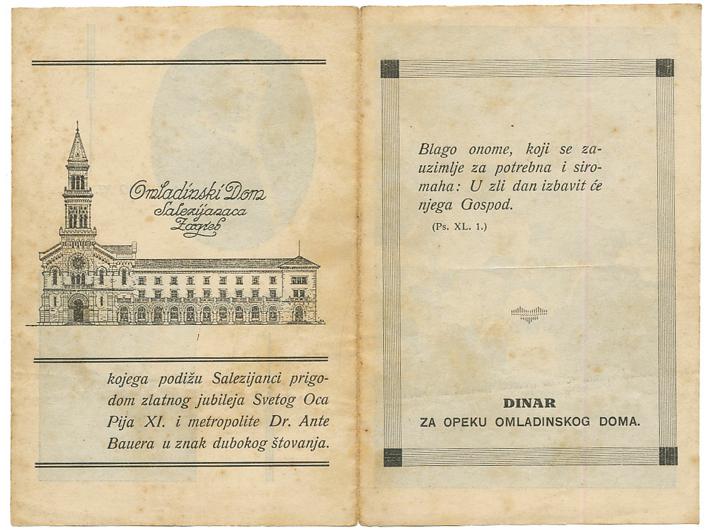 Omladinski Dom
Salezijanaca
Zagreb
kojega podižu Salezijanci prigo-
dom zlatnog jubileja Svetog Oca
Pija XI. i metropolite Dr. Ante
Bauera u znak dubokog štovanja.
Blago onome, koji se za-
uzimlje za potrebna i siro-
maha: U zli dan izbavit će
njega Gospod.
(Ps. XL. 1.)
DINAR
ZA OPEKU OMLADINSKOG DOMA.